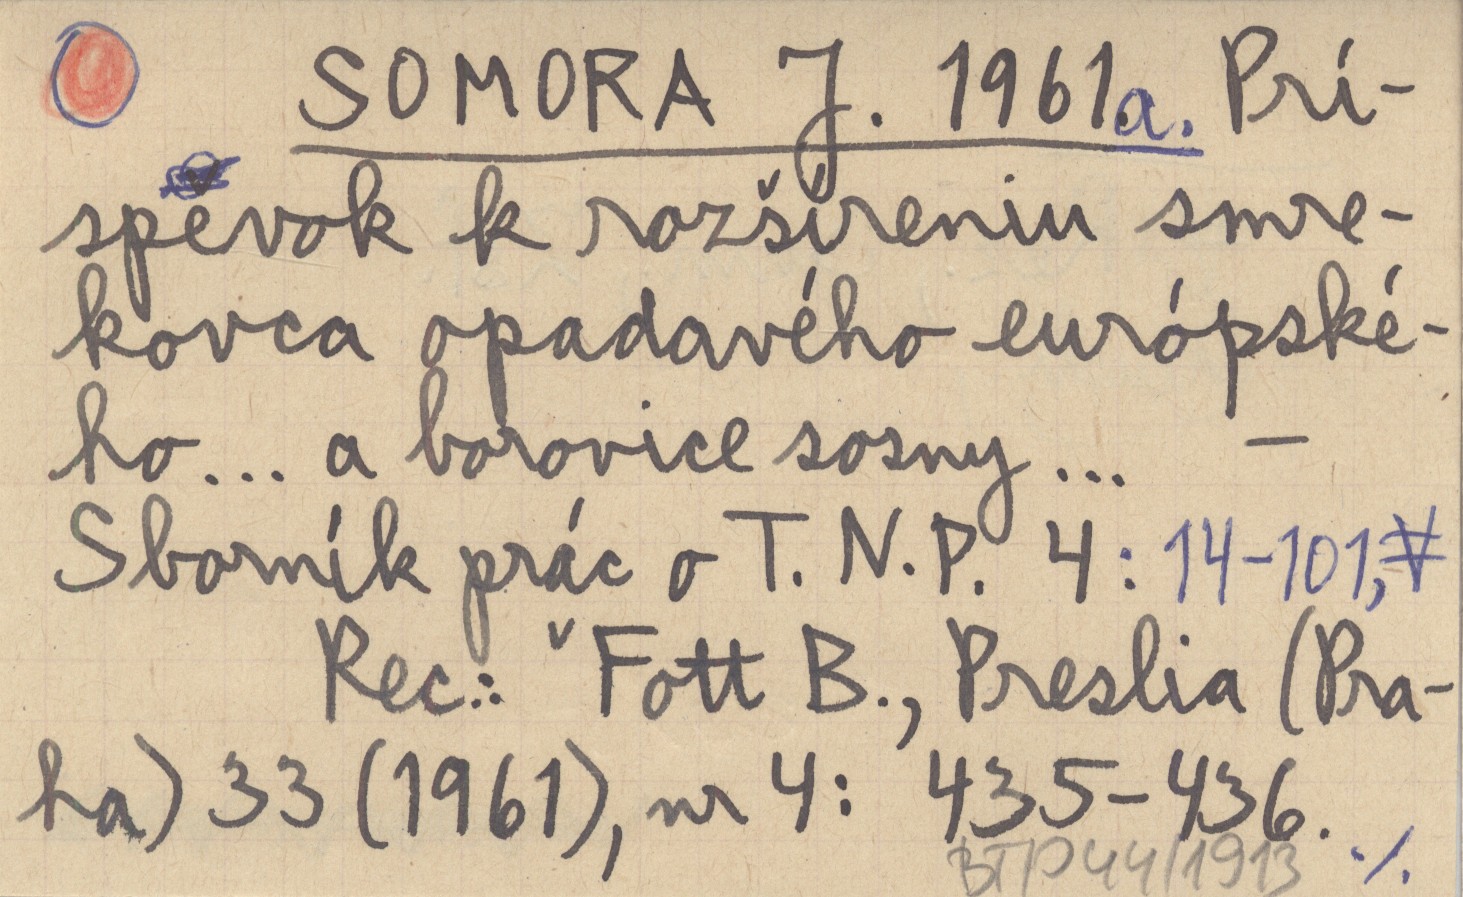 SOMORA J. 1961a. Prí-
spevok k rozšíreniu smre-
kovca opadavého európské-
ho... a borovice sosny... –
Sborník prác o T.N.P. 4: 14-101,
Rec.: Fott B., Preslia (Pra-
ha) 33 (1961), nr 4: 435-436.
BT/P 44/1913 ./.